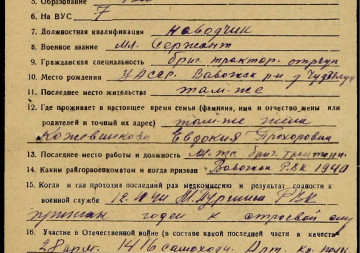 5. Образование
6. На ВУС 7
7. Должностная квалификация наводчик
8. Военное звание Мл. Сержант
9. Гражданская специальность бриг. трактор. отряда
10. Место рождения УАССР. Вавожск р-н д
11. Последнее место жительства там-же
12. Где проживает в настоящее время семья (фамилия, имя и отчество жены или
родителей и точный их адрес) там-же жена
Кожевникова Евдокия Прохоровна
13. Последнее место работы и должность бриг.
14. Каким райгорвоенкоматом и когда призван Вавожск РВК 1940
15. Когда и где проходил последний раз медкомиссию и результат годности к
военной службе РВК
годен к строевой
16. Участие в Отечественной войне (в составе какой последней части в качестве
1416 самоходн. Арт. полк